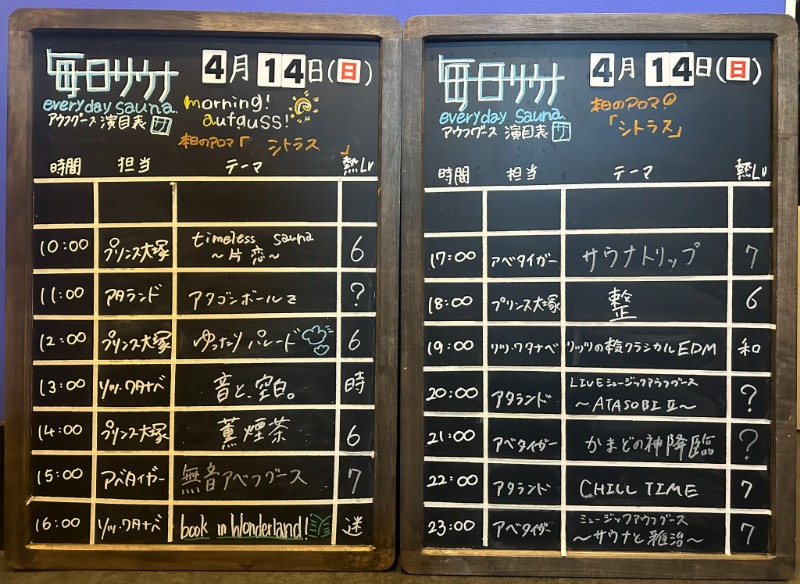 毎日サウナ
4月14日(日)
everyday sauna.
morning!
aufguss!
アウフグース 演目表 サ
本日のアロマ「シトラス」
時間 担当 テーマ 熱Lv
10:00 プリンス大塚 timeless sauna ～片恋～ 6
11:00 アタランド アタゴンボールZ ?
12:00 プリンス大塚 ゆったりパレード 6
13:00 リツ・ワタナベ 音と、空白。 時
14:00 プリンス大塚 薫煙茶 6
15:00 アベタイガー 無音アベフグース 7
16:00 リツ・ワタナベ book in Wonderland! 迷
毎日サウナ
4月14日(日)
everyday sauna.
アウフグース 演目表 サ
本日のアロマの
「シトラス」
時間 担当 テーマ 熱Lv
17:00 アベタイガー サウナトリップ 7
18:00 プリンス大塚 整 6
19:00 リツ・ワタナベ リッツの クラシカルEDM 和
20:00 アタランド LIVEミュージックアウフグース ～ATASOBI II～ ?
21:00 アベタイガー かまどの神降臨 ?
22:00 アタランド CHILL TIME 7
23:00 アベタイガー ミュージックアウフグース ～サウナと 治～ 7